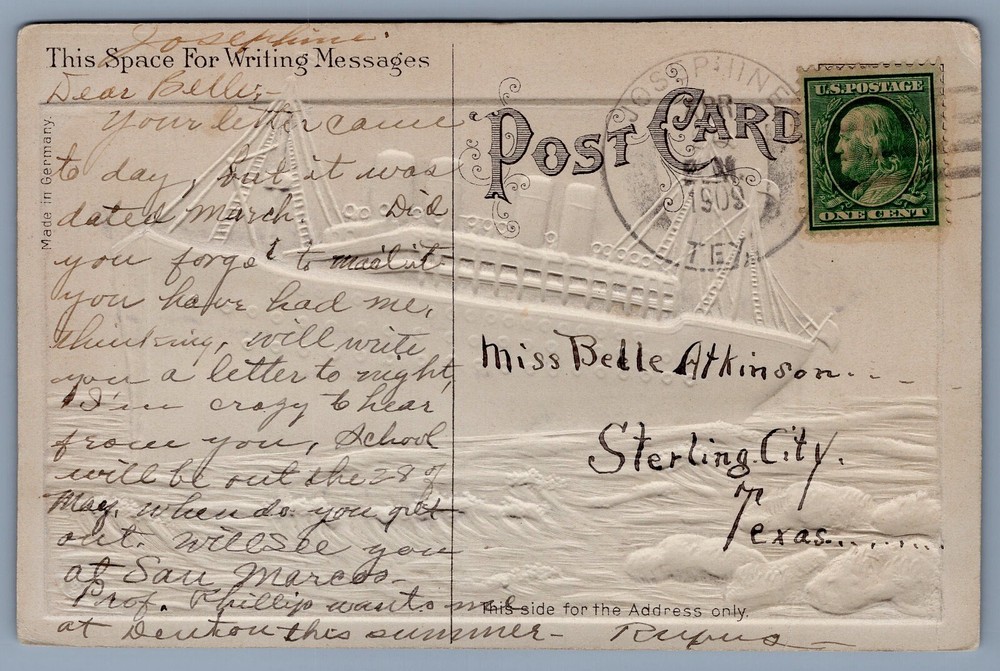 Josephine.
This Space For Writing Messages
Dear Belle-
Your letter came
to day, but it was
dated March. Did
you forget to mail it
you have had me,
thinking, will write
you a letter to night,
I'm crazy to hear
from you, School
will be out the 28 of
May. when do you get
out. Will see you
at San Marcos-
Prof. Phillip wants me
at Denton this summer- Rufus
Made in Germany.
POST CARD
JOSEPHINE
APR
P.M.
1909
TEX.
U.S. POSTAGE
ONE CENT
Miss Belle Atkinson...
Sterling City.
Texas........
This side for the Address only.